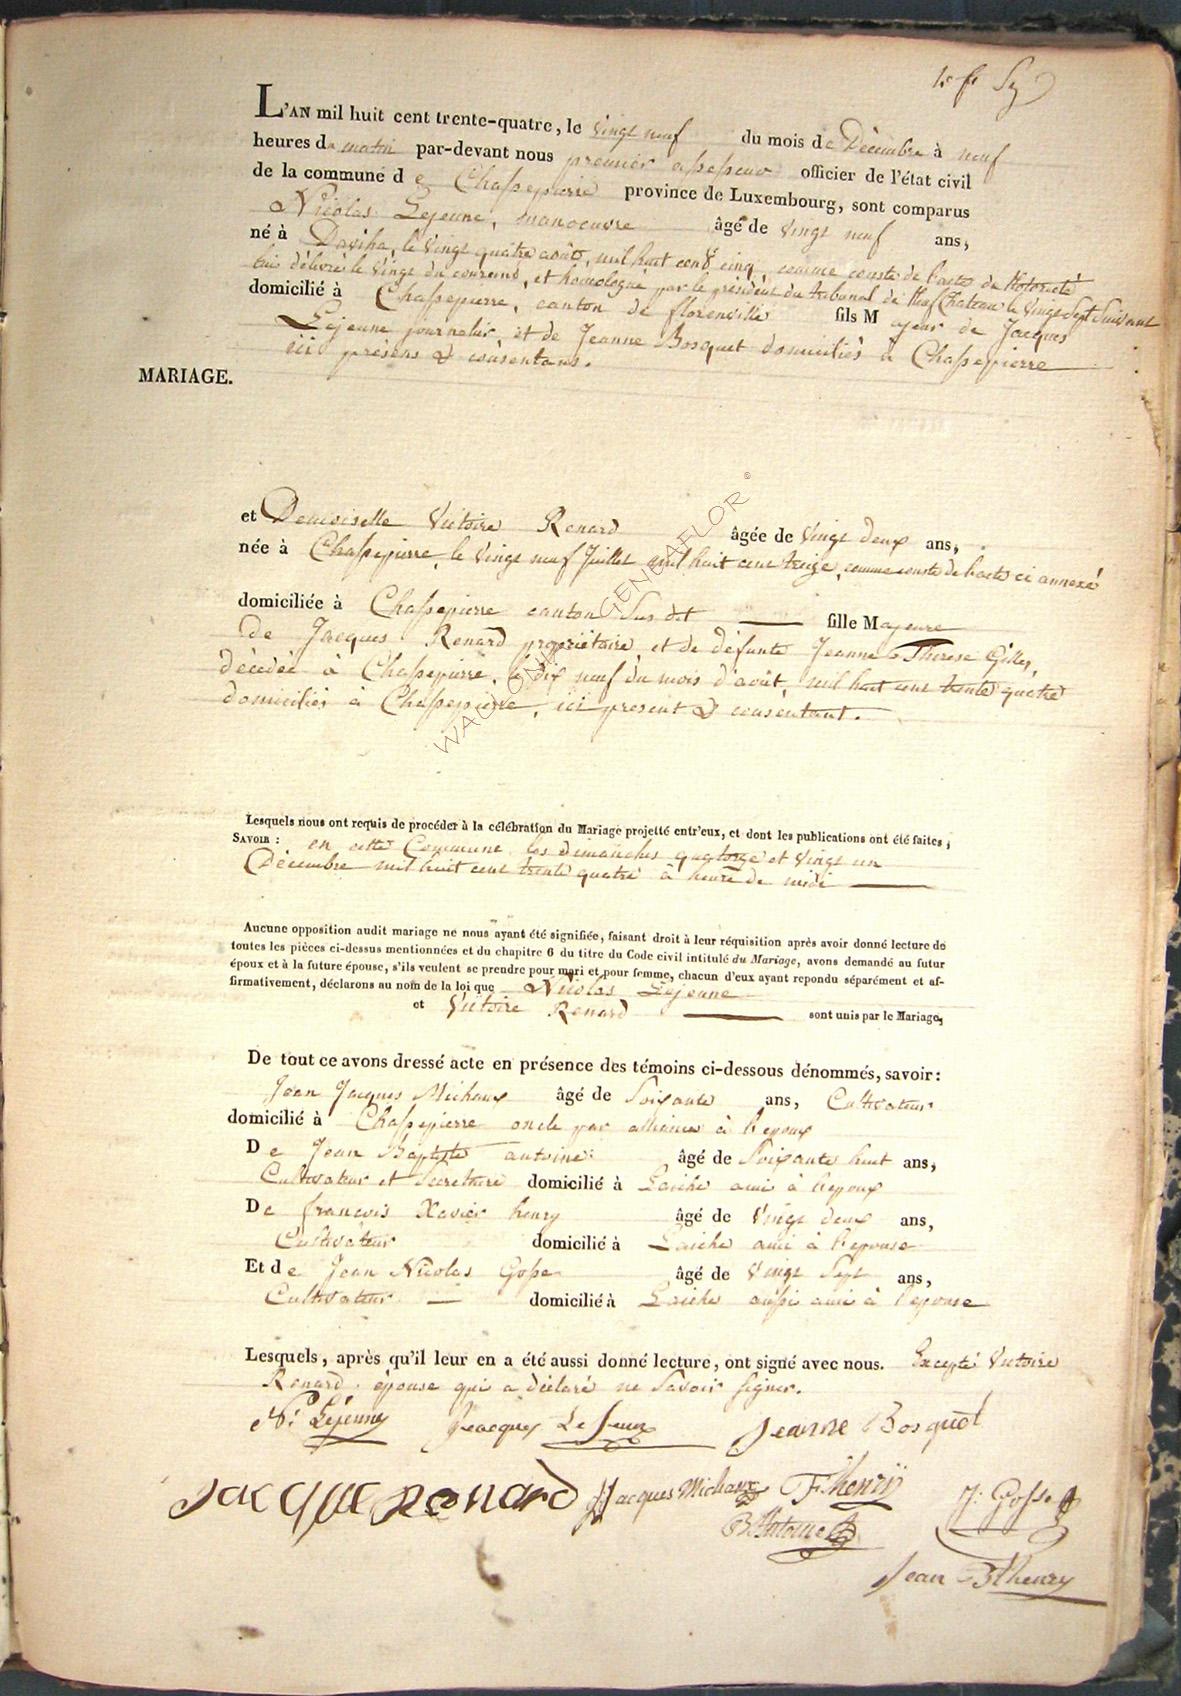 L'AN mil huit cent trente-quatre, le vingt neuf du mois de Décembre à neuf
heures du matin par-devant nous premier assesseur officier de l'état civil
de la commune de Chassepierre province de Luxembourg, sont comparus
Nicolas Lejeune, manoeuvre âgé de vingt neuf ans,
né à Daviha, le vingt quatre août, mil huit cent cinq, comme conste de l'acte de Notorieté
lui délivré le vingt du courend, et homologué par le président du tribunal de Neufchateau le vingt sept suivant
domicilié à Chassepierre, canton de florenville fils Majeur de Jacques
Lejeune journalier, et de Jeanne Bosquet domiciliés à Chassepierre
ici présens & consentans.
MARIAGE.
et Demoiselle Victoire Renard âgée de vingt deux ans,
née à Chassepierre, le vingt neuf Juillet mil huit cent treize, comme conste de l'acte ci annexé
domiciliée à Chassepierre canton sus dit fille Majeure
de Jacques Renard propriétaire, et de défunte Jeanne Therese Gilles,
décédée à Chassepierre, le dix neuf du mois d'août, mil huit cent trente quatre
domiciliés à Chassepierre, ici present & consentant.
Lesquels nous ont requis de procéder à la célébration du Mariage projetté entr'eux, et dont les publications ont été faites;
SAVOIR : en cette Commune les dimanches quatorze et vingt un
Décembre mil huit cent trente quatre à heure de midi
Aucune opposition audit mariage ne nous ayant été signifiée, faisant droit à leur réquisition après avoir donné lecture de
toutes les pièces ci-dessus mentionnées et du chapitre 6 du titre du Code civil intitulé du Mariage, avons demandé au futur
époux et à la future épouse, s'ils veulent se prendre pour mari et pour femme, chacun d'eux ayant repondu séparément et af-
firmativement, déclarons au nom de la loi que Nicolas Lejeune
et Victoire Renard sont unis par le Mariage,
De tout ce avons dressé acte en présence des témoins ci-dessous dénommés, savoir:
Jean Jacques Michaux âgé de Soixante ans, Cultivateur
domicilié à Chassepierre oncle par alliance à l'epoux
De Jean Baptiste antoine âgé de Soixante huit ans,
Cultivateur et Secretaire domicilié à Laiche ami à l'epoux
De françois Xavier henry âgé de Vingt deux ans,
Cultivateur domicilié à Laiche ami à l'epouse
Et de Jean Nicolas Gosse âgé de Vingt Sept ans,
Cultivateur domicilié à Laiche aussi ami à l'epouse
Lesquels, après qu'il leur en a été aussi donné lecture, ont signé avec nous. Excepté Victoire
Renard épouse qui a déclaré ne Savoir signer.
N. Lejeune Jeacques LeJeun Jeanne Bosquet
Jacque renard JJacques Michaux F henrÿ J: Gosse
B Antoine
Jean Bt henry
WALLONIA GENEAFLOR ©